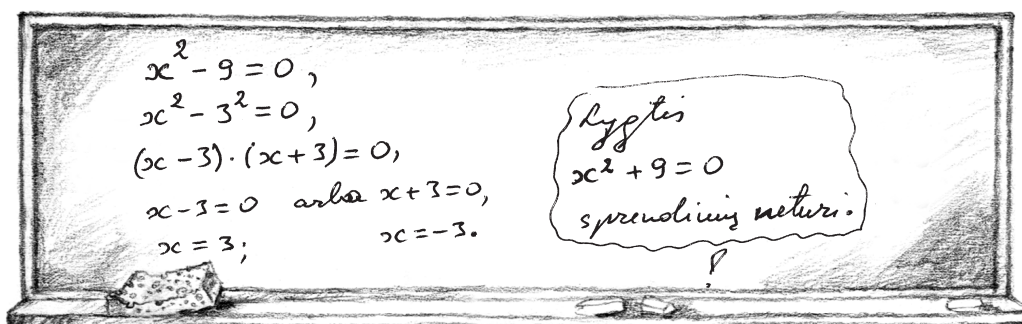 x² - 9 = 0,
x² - 3² = 0,
(x - 3) · (x + 3) = 0,
x - 3 = 0 arba x + 3 = 0,
x = 3; x = -3.
Lygtis
x² + 9 = 0
sprendinių neturi.
?